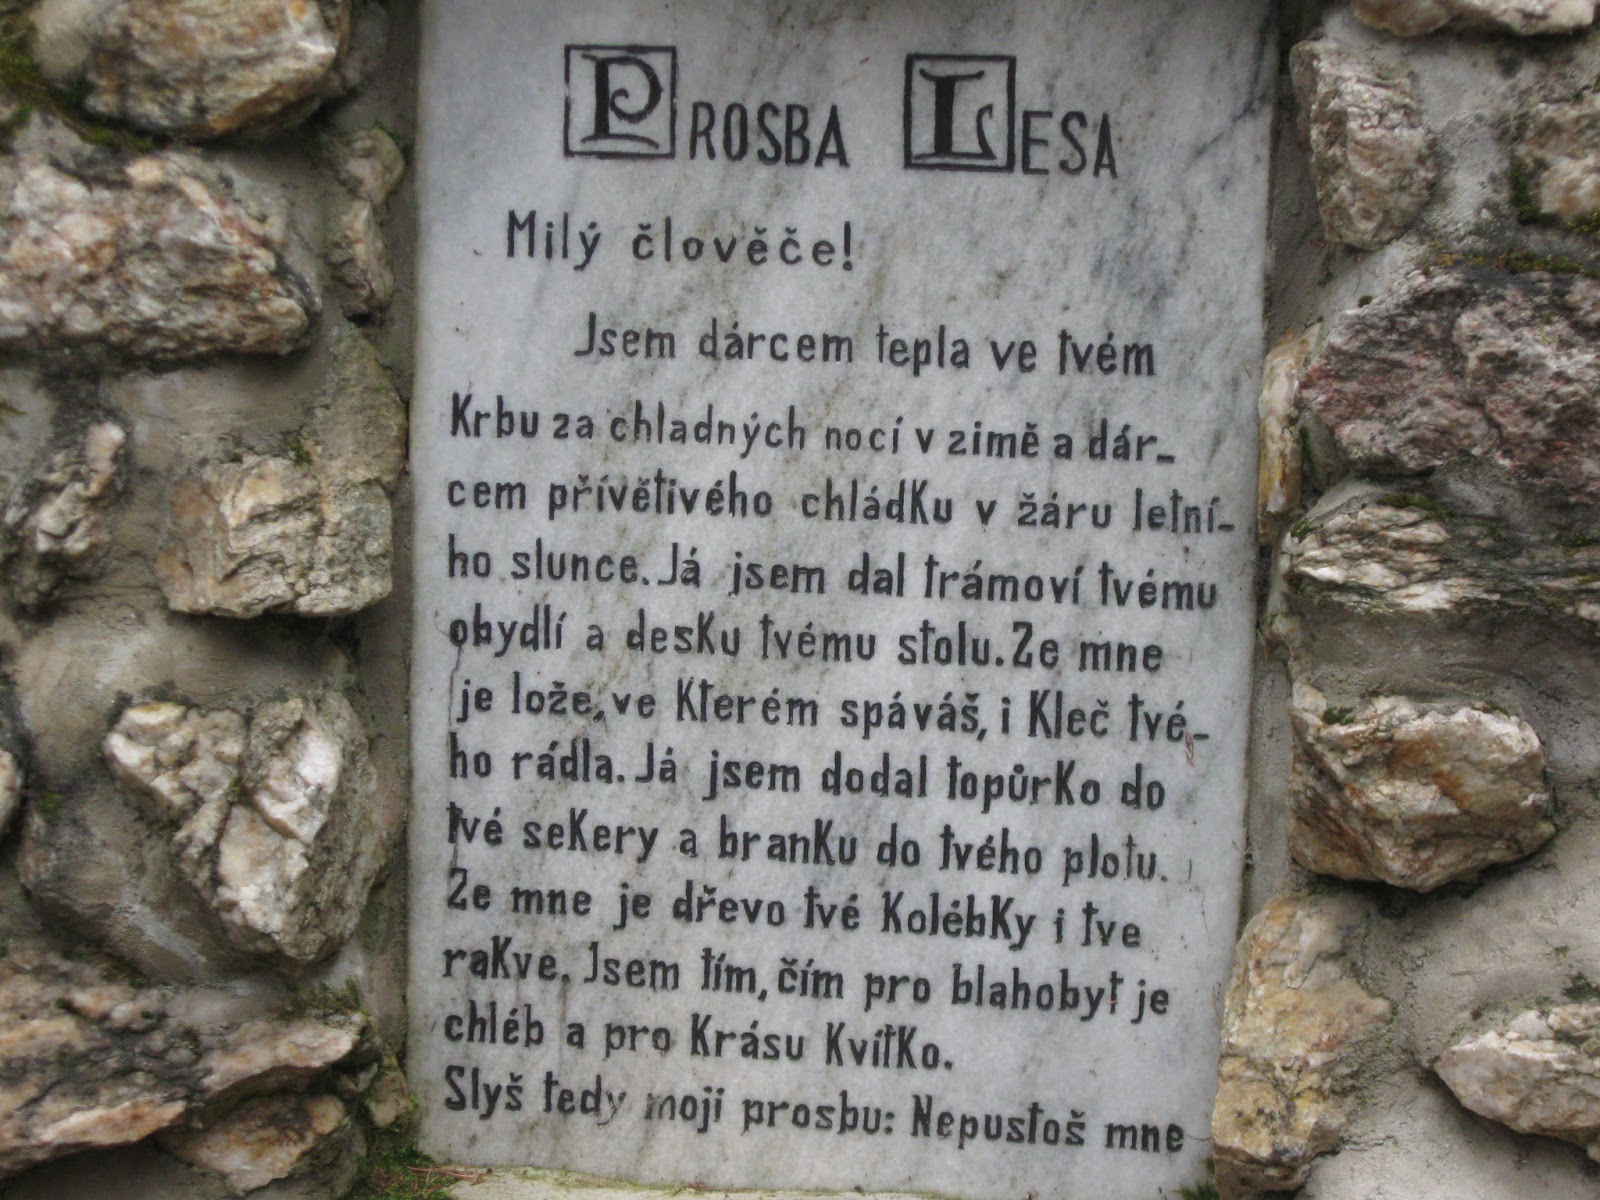 PROSBA LESA
Milý člověče!
Jsem dárcem tepla ve tvém
Krbu za chladných nocí v zimě a dár-
cem přívětivého chládKu v žáru letní-
ho slunce. Já jsem dal trámoví tvému
obydlí a desKu tvému stolu. Ze mne
je lože, ve Kterém spáváš, i Kleč tvé-
ho rádla. Já jsem dodal topůrKo do
tvé seKery a branKu do tvého plotu.
Ze mne je dřevo tvé KolébKy i tve
raKve. Jsem tím, čím pro blahobyt je
chléb a pro Krásu KvítKo.
Slyš tedy moji prosbu: Nepustoš mne